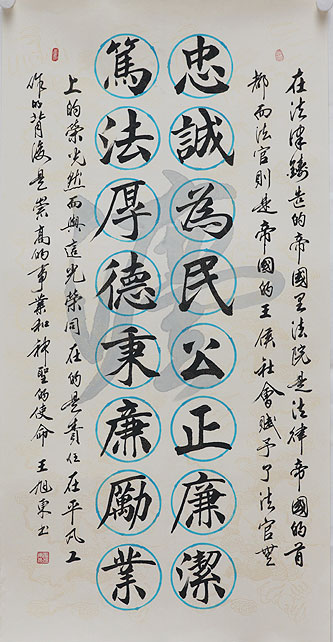 在法律鑄造的帝國里法院是法律帝國的首
都而法官則是帝國的王侯社會賦予了法官無
忠誠為民公正廉潔
篤法厚德秉廉勵業
灋
上的榮光然而與這光榮同在的是責任在平凡工
作的背後是崇高的事業和神聖的使命 王旭东书